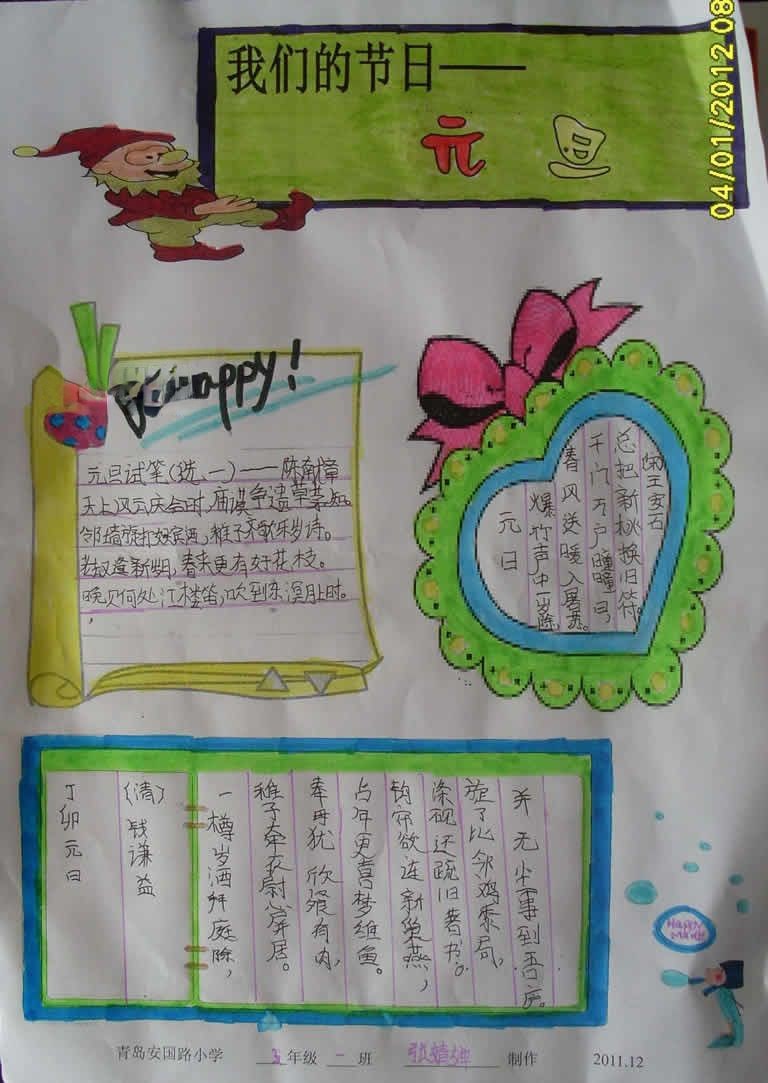 04/01/2012 08
我们的节日——
元旦
Be happy!
元旦试笔(选一)——陈献章
天上风云庆会时,庙谟争遗草茅知。
邻墙旋打娱宾酒,稚子齐歌乐岁诗。
老去又逢新岁月,春来更有好花枝。
晚风何处江楼笛,吹到东溟月上时。
元日
爆竹声中一岁除
春风送暖入屠苏。
千门万户瞳瞳日,
总把新桃换旧符。
王安石
丁卯元日
(清)钱谦益
一樽岁酒拜庭除,
稚子牵衣慰屏居。
奉母犹欣餐有肉,
占年更喜梦维鱼。
钩帘欲连新巢燕,
涤砚还疏旧著书。
旋了比邻鸡黍局,
并无尘事到吾庐。
青岛安国路小学 五年级 一班 张婧 制作 2011.12